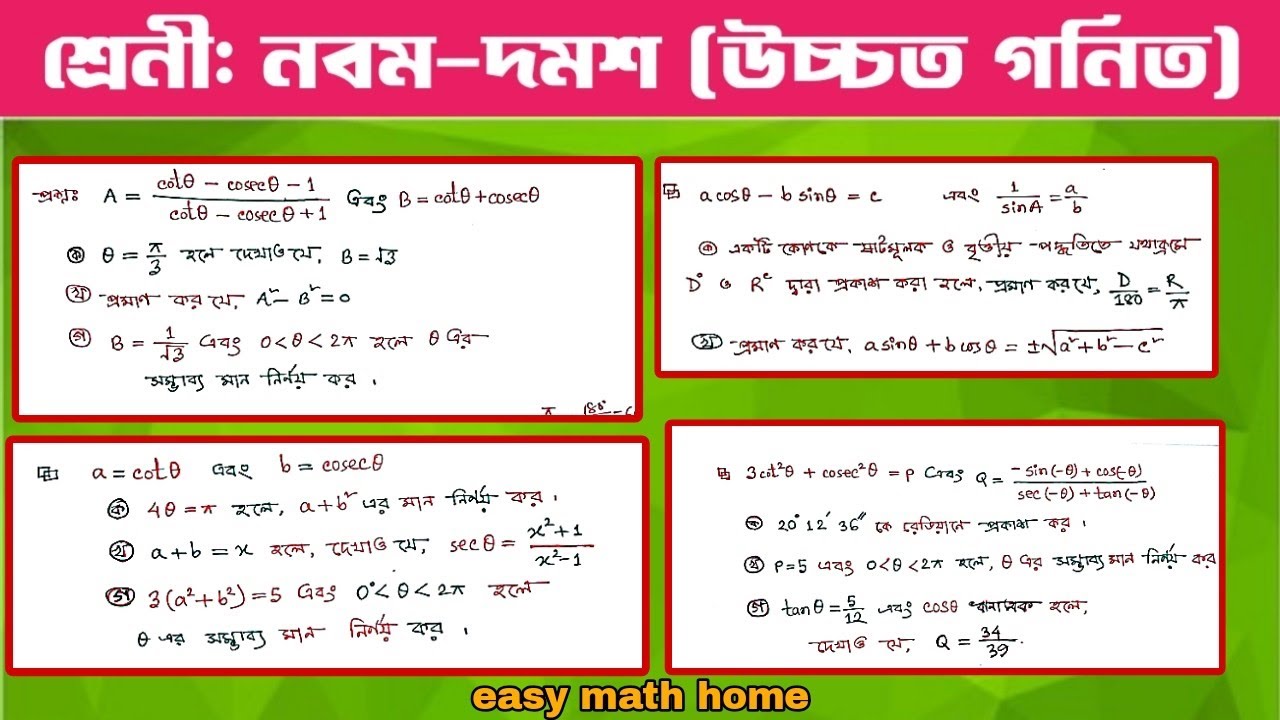 শ্রেনী: নবম-দমশ (উচ্চত গনিত)
প্রশ্নঃ A = (cotθ - cosecθ - 1)/(cotθ - cosecθ + 1) এবং B = cotθ + cosecθ
ক θ = π/3 হলে দেখাও যে, B = √3
খ প্রমাণ কর যে, A² - B² = 0
গ B = 1/√3 এবং 0 < θ < 2π হলে θ এর
সম্ভাব্য মান নির্ণয় কর।
a cosθ - b sinθ = c এবং 1/sinA = a/b
ক একটি কোণকে ষাটমূলক ও বৃত্তীয় পদ্ধতিতে যথাক্রমে
D° ও Rᶜ দ্বারা প্রকাশ করা হলে, প্রমাণ কর যে, D/180 = R/π
খ প্রমাণ কর যে, a sinθ + b cosθ = ±√(a² + b² - c²)
a = cotθ এবং b = cosecθ
ক 4θ = π হলে, a + b² এর মান নির্ণয় কর।
খ a + b = x হলে, দেখাও যে, secθ = (x² + 1)/(x² - 1)
গ 3(a² + b²) = 5 এবং 0° < θ < 2π হলে
θ এর সম্ভাব্য মান নির্ণয় কর।
3cot²θ + cosec²θ = P এবং Q = (-sin(-θ) + cos(-θ))/(sec(-θ) + tan(-θ))
ক 20° 12′ 36″ কে রেডিয়ানে প্রকাশ কর।
খ P = 5 এবং 0 < θ < 2π হলে, θ এর সম্ভাব্য মান নির্ণয় কর
গ tanθ = 5/12 এবং cosθ হলে,
দেখাও যে, Q = 34/39.
easy math home